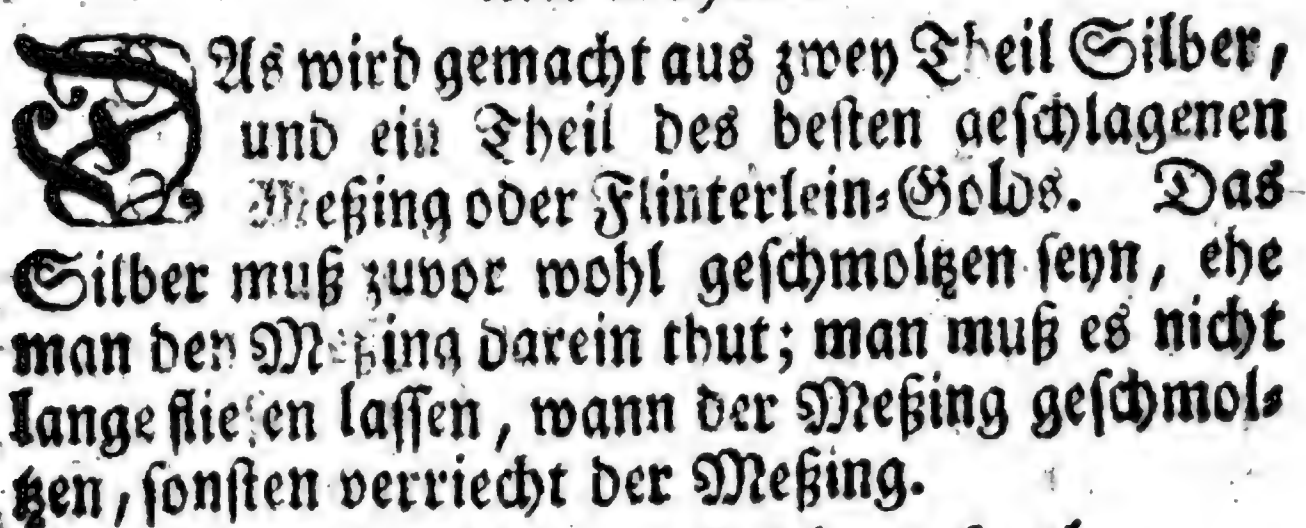 DAs wird gemacht aus zwey Theil Silber,
und ein Theil des besten geschlagenen
Meßing oder Flinterlein-Golds. Das
Silber muß zuvor wohl geschmoltzen seyn, ehe
man den Meßing darein thut; man muß es nicht
lange fliesen lassen, wann der Meßing geschmol-
tzen, sonsten verriecht der Meßing.